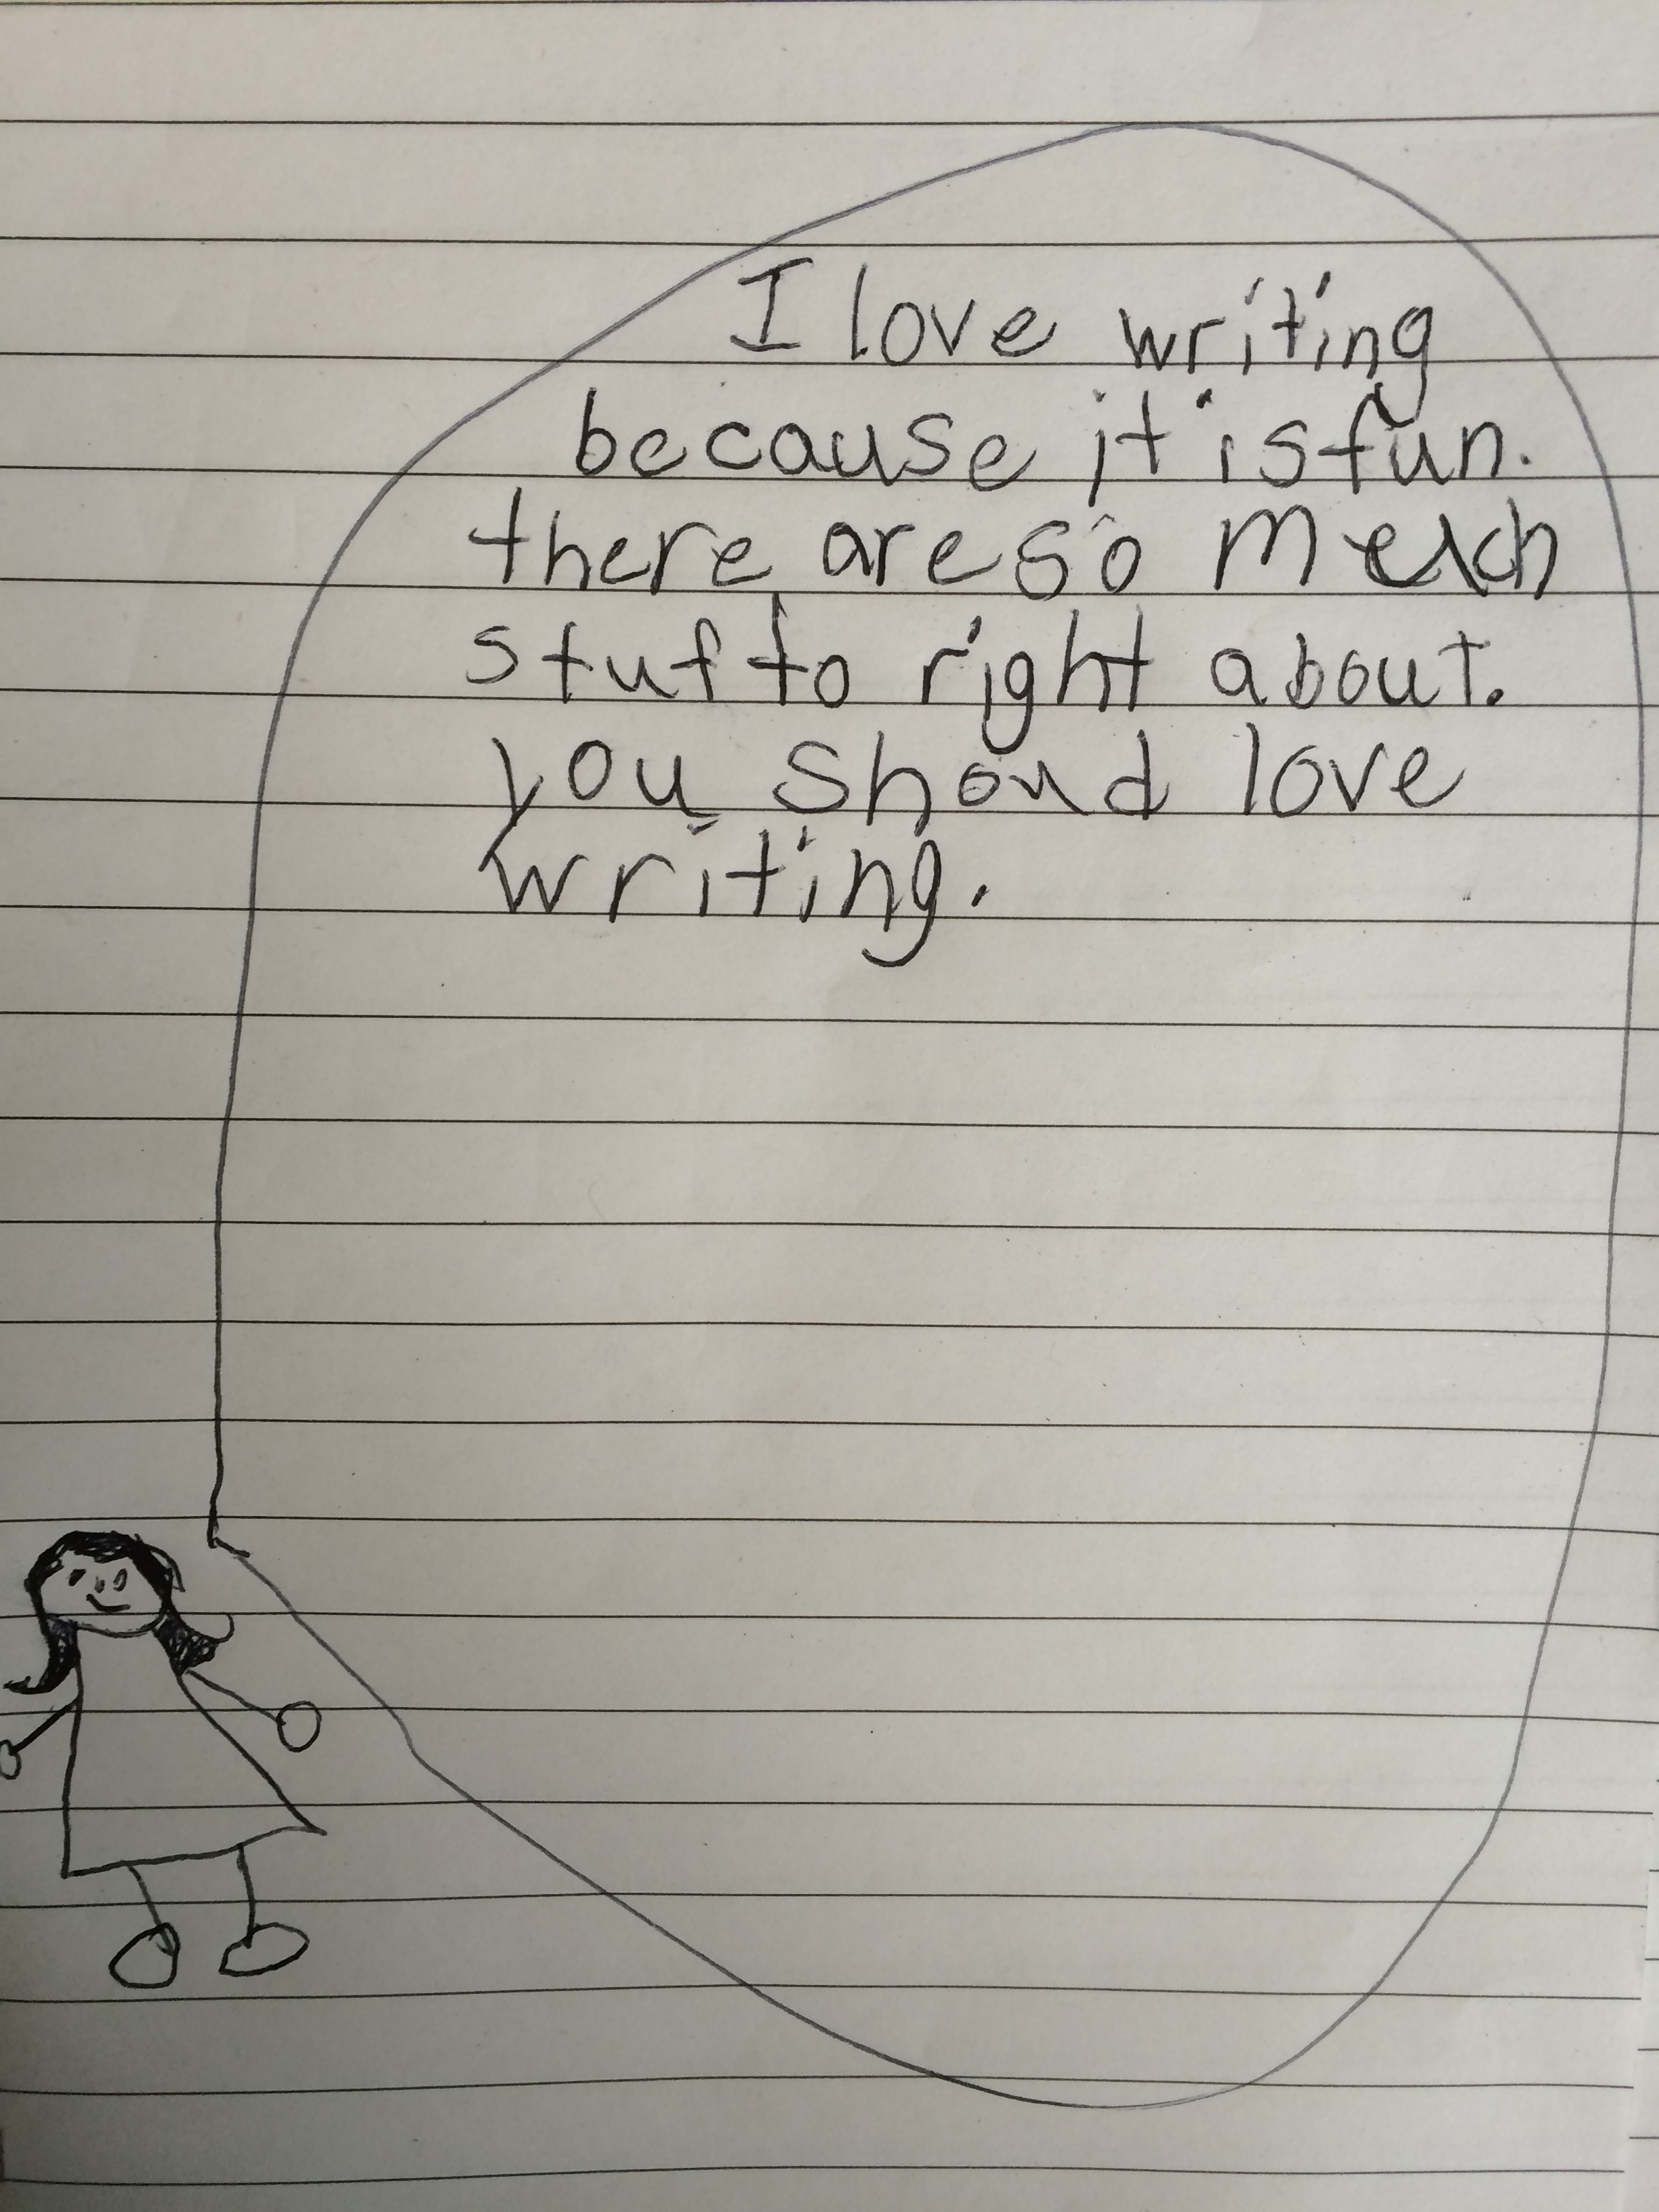 I love writing
because it is fun.
there are so much
stuf to right about.
you shoud love
writing.